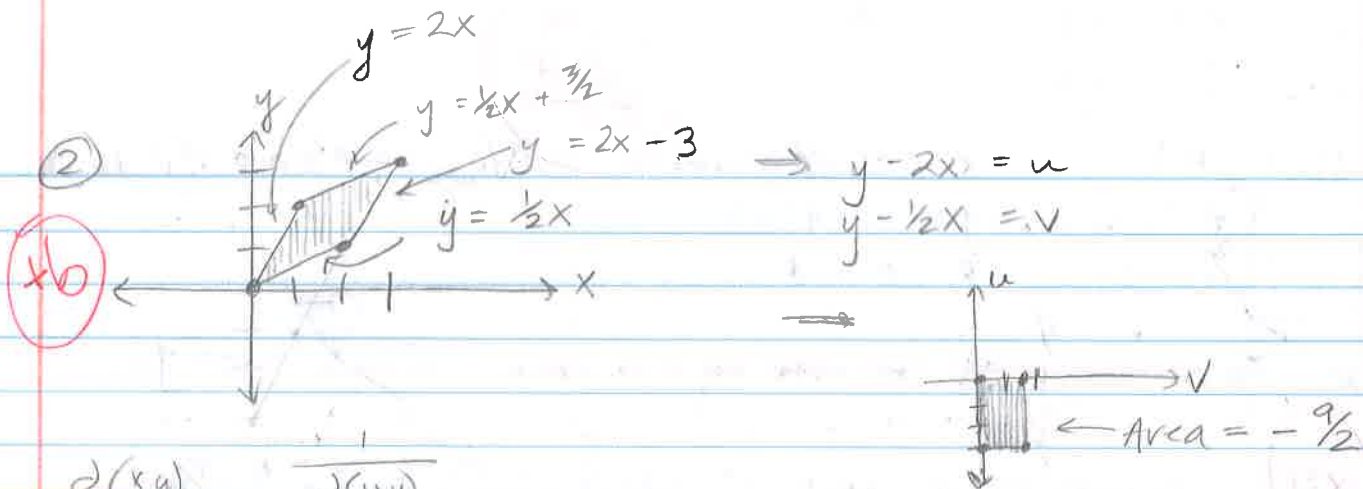 y = 2x
y = ½x + 3/2
y
②
y = 2x - 3 → y - 2x = u
y = ½x
y - ½x = v
x
u
v
← Area = - 9/2
∂(x,y)
1